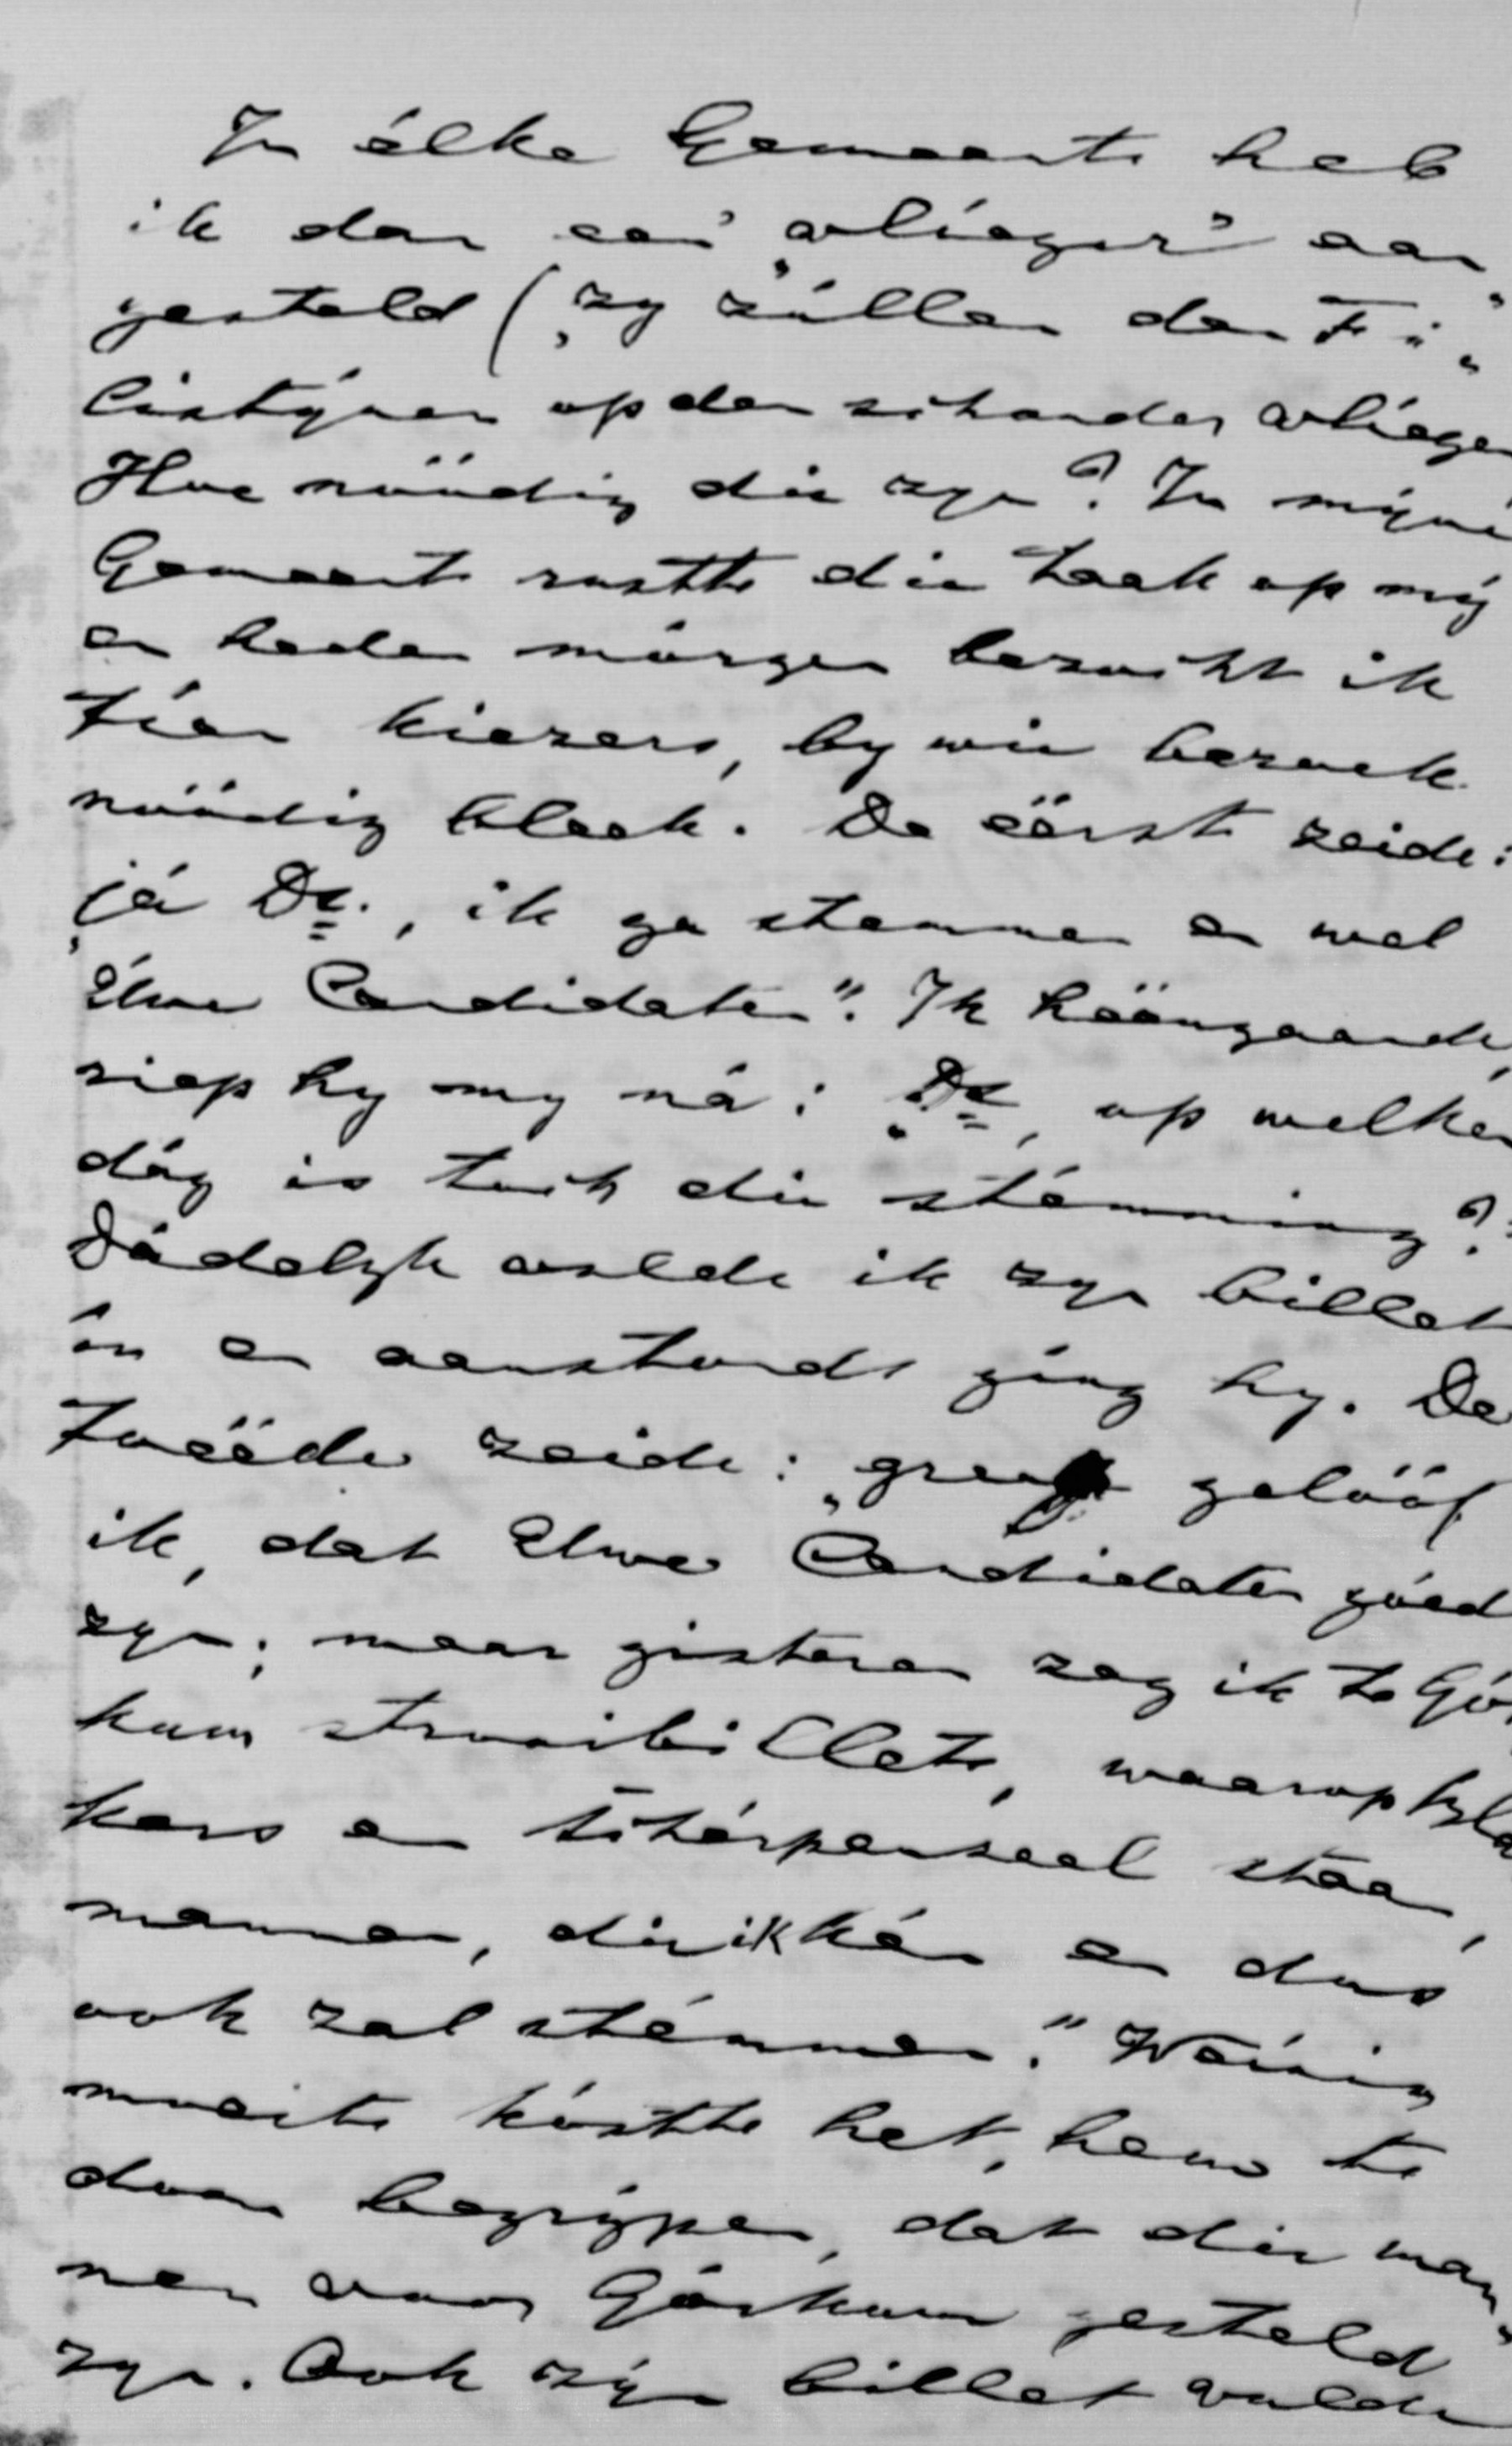 In élke Gemeente heb
ik dan een „vlieger" aan„
gesteld („zy zúllen den Fi„
listýnen op den schouder vliegen
Hoe nöödig die zyn? In mýne
Gemeente rustte die taak op mý
en heden mórgen bezocht ik
tíen kiezers, by wie bezoek
nöödig bleek. De ëërste zeide:
„já Ds., ik ga stemmen en wel
Uwe Candidaten". Ik hëëngaande,
riep hy my ná: „Ds, op welken
dág is toch die stémming?"
Dádelyk vulde ik zyn billet
ín en aanstonds gíng hy. De
twëëde zeide: „graag gelööf
ik, dat Uwe Candidaten góed
zyn; maar gisteren zag ik te Gór
kum strooibillets, waarop
kers en Schérpenzeel staan,
mannen, die ik kén en dus
ook zal stémmen." Wéinig
moeite kóstte het, hem te
doen begrýpen, dat die man„
nen voor Górkum gesteld
zyn. Ook zýn billet vulde